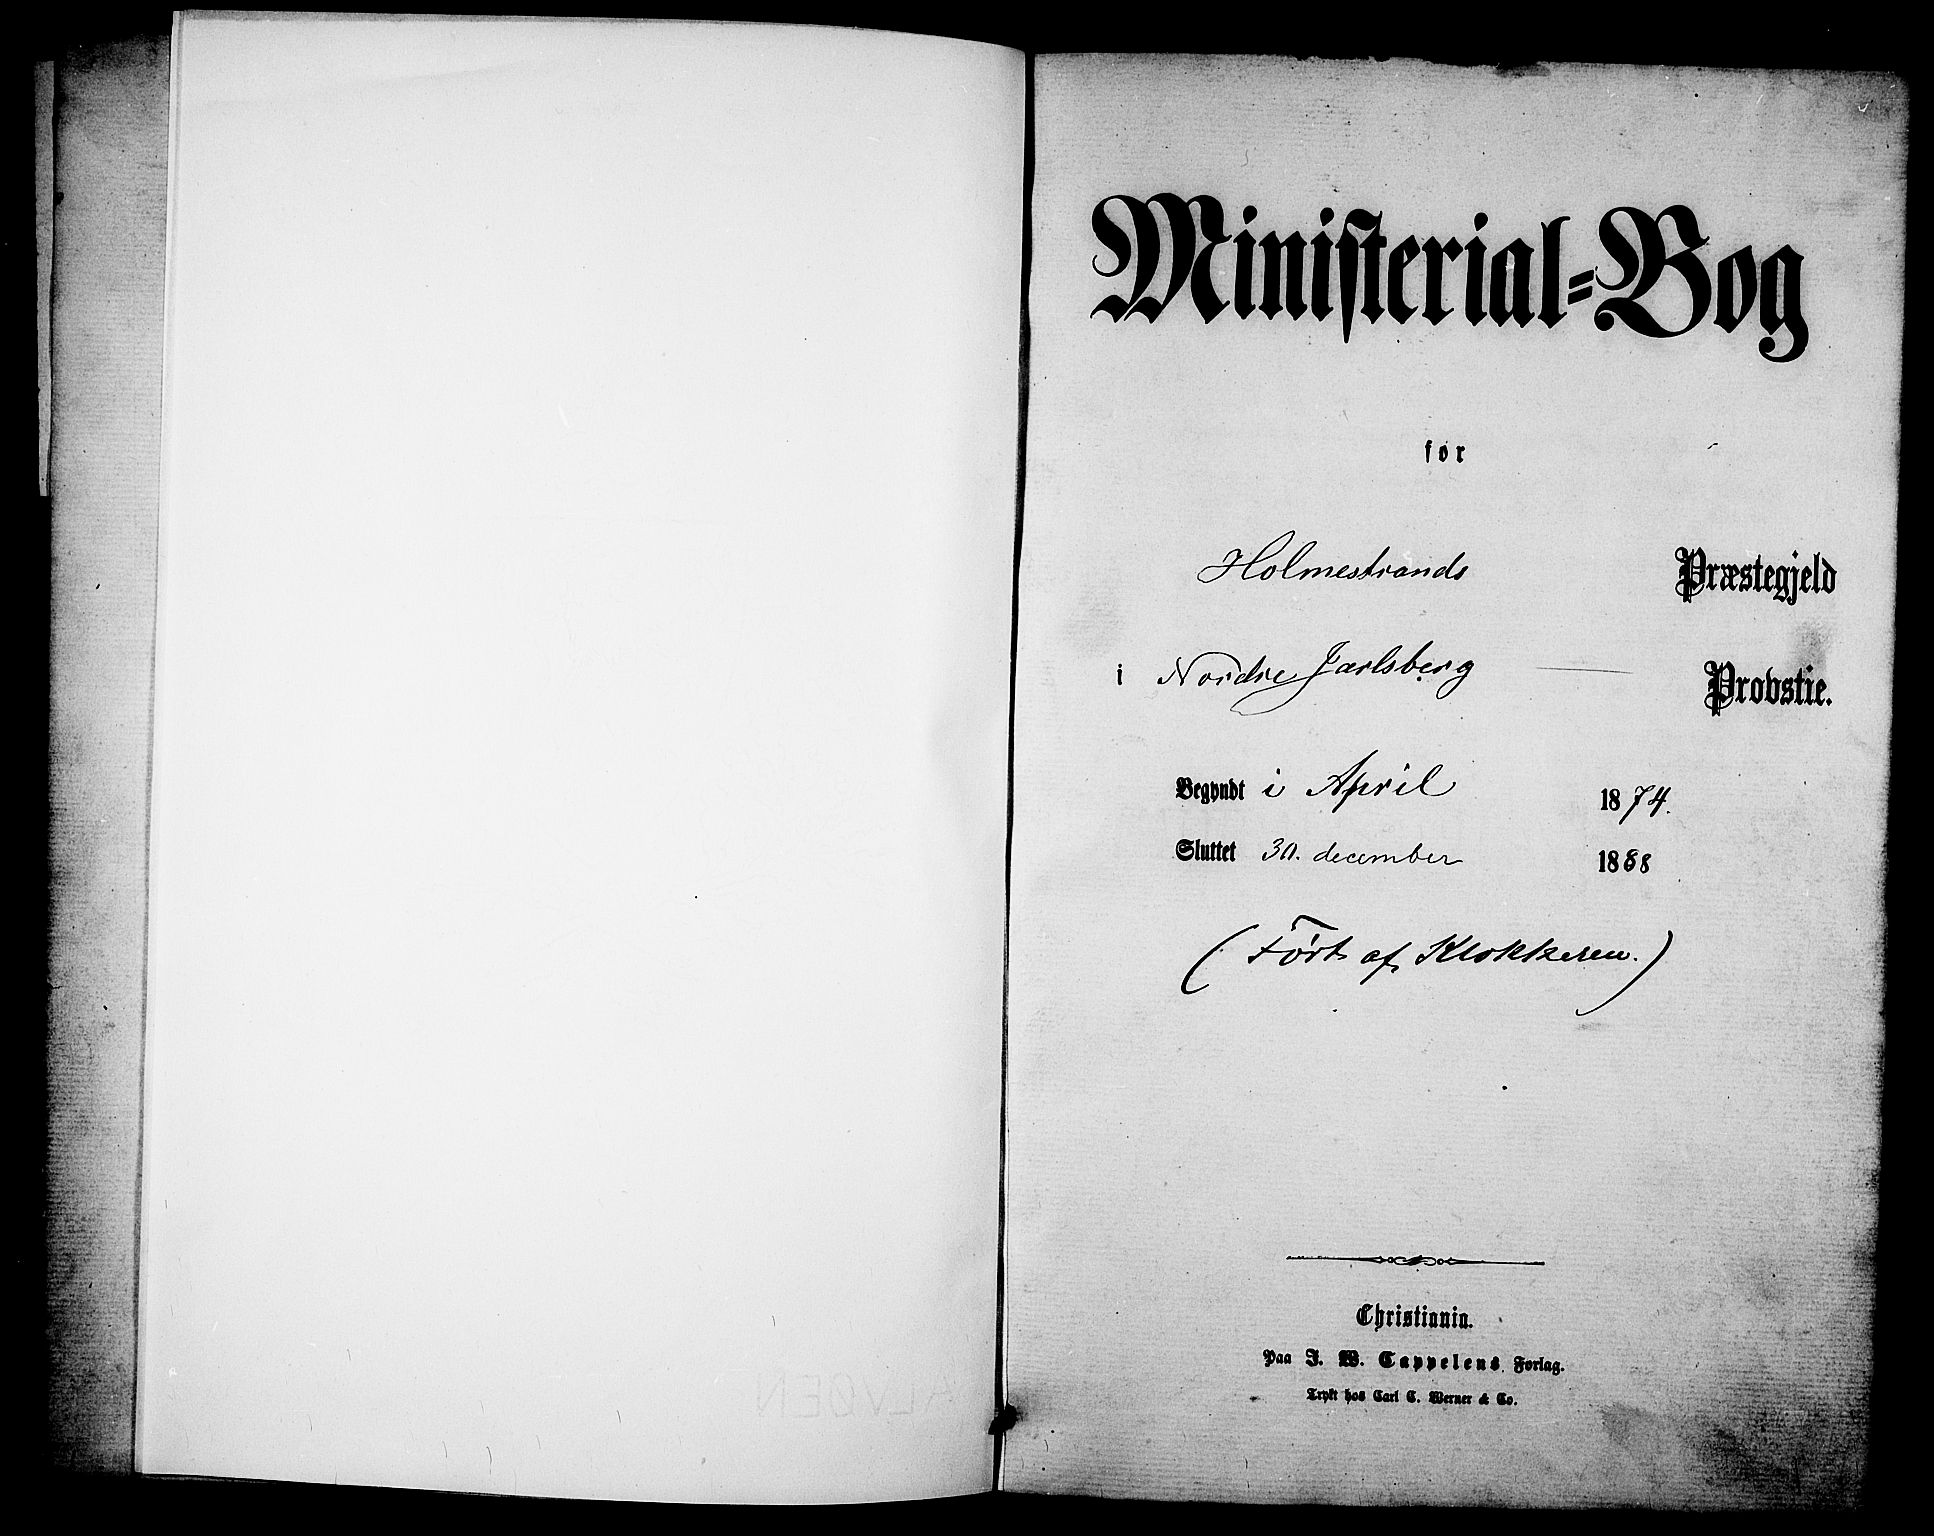 Ministerial-Bog
for
Holmestrands Præstegjeld
i Nordre Jarlsberg Provstie.
Begyndt i April 1874.
Sluttet 30. december 1888
(Ført af Klokkeren.)
Christiania.
Paa J. W. Cappelens Forlag.
Trykt hos Carl C. Werner & Co.